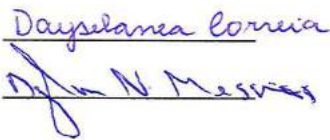 Dayselanea Correia
N. Messias